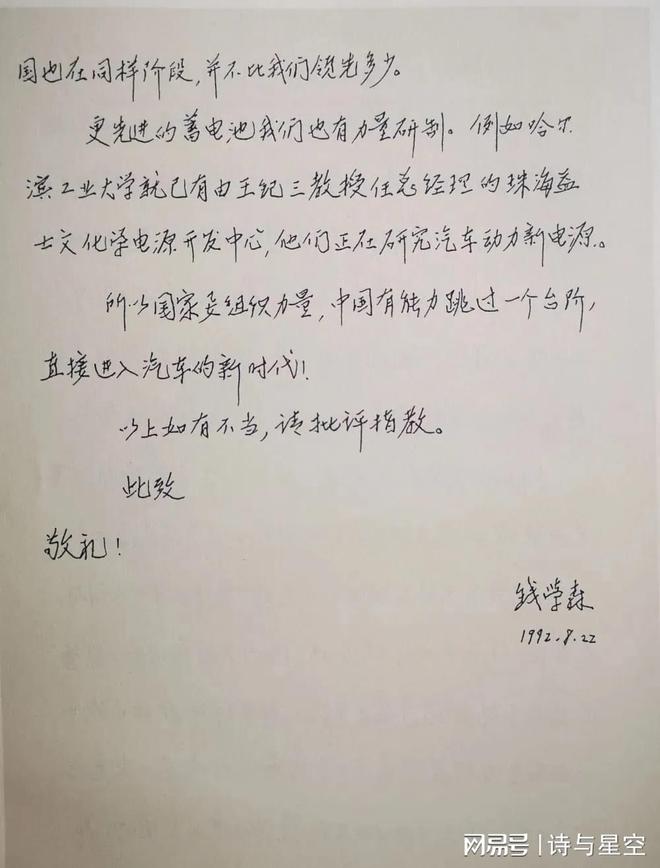 国也在同样阶段，并不比我们领先多少。
更先进的蓄电池我们也有力量研制。例如哈尔
滨工业大学就已有由王纪三教授任总经理的珠海益
士文化学电源开发中心，他们正在研究汽车动力新电源。
所以国家要组织力量，中国有能力跳过一个台阶，
直接进入汽车的新时代！
以上如有不当，请批评指教。
此致
敬礼！
钱学森
1992.8.22
网易号 | 诗与星空